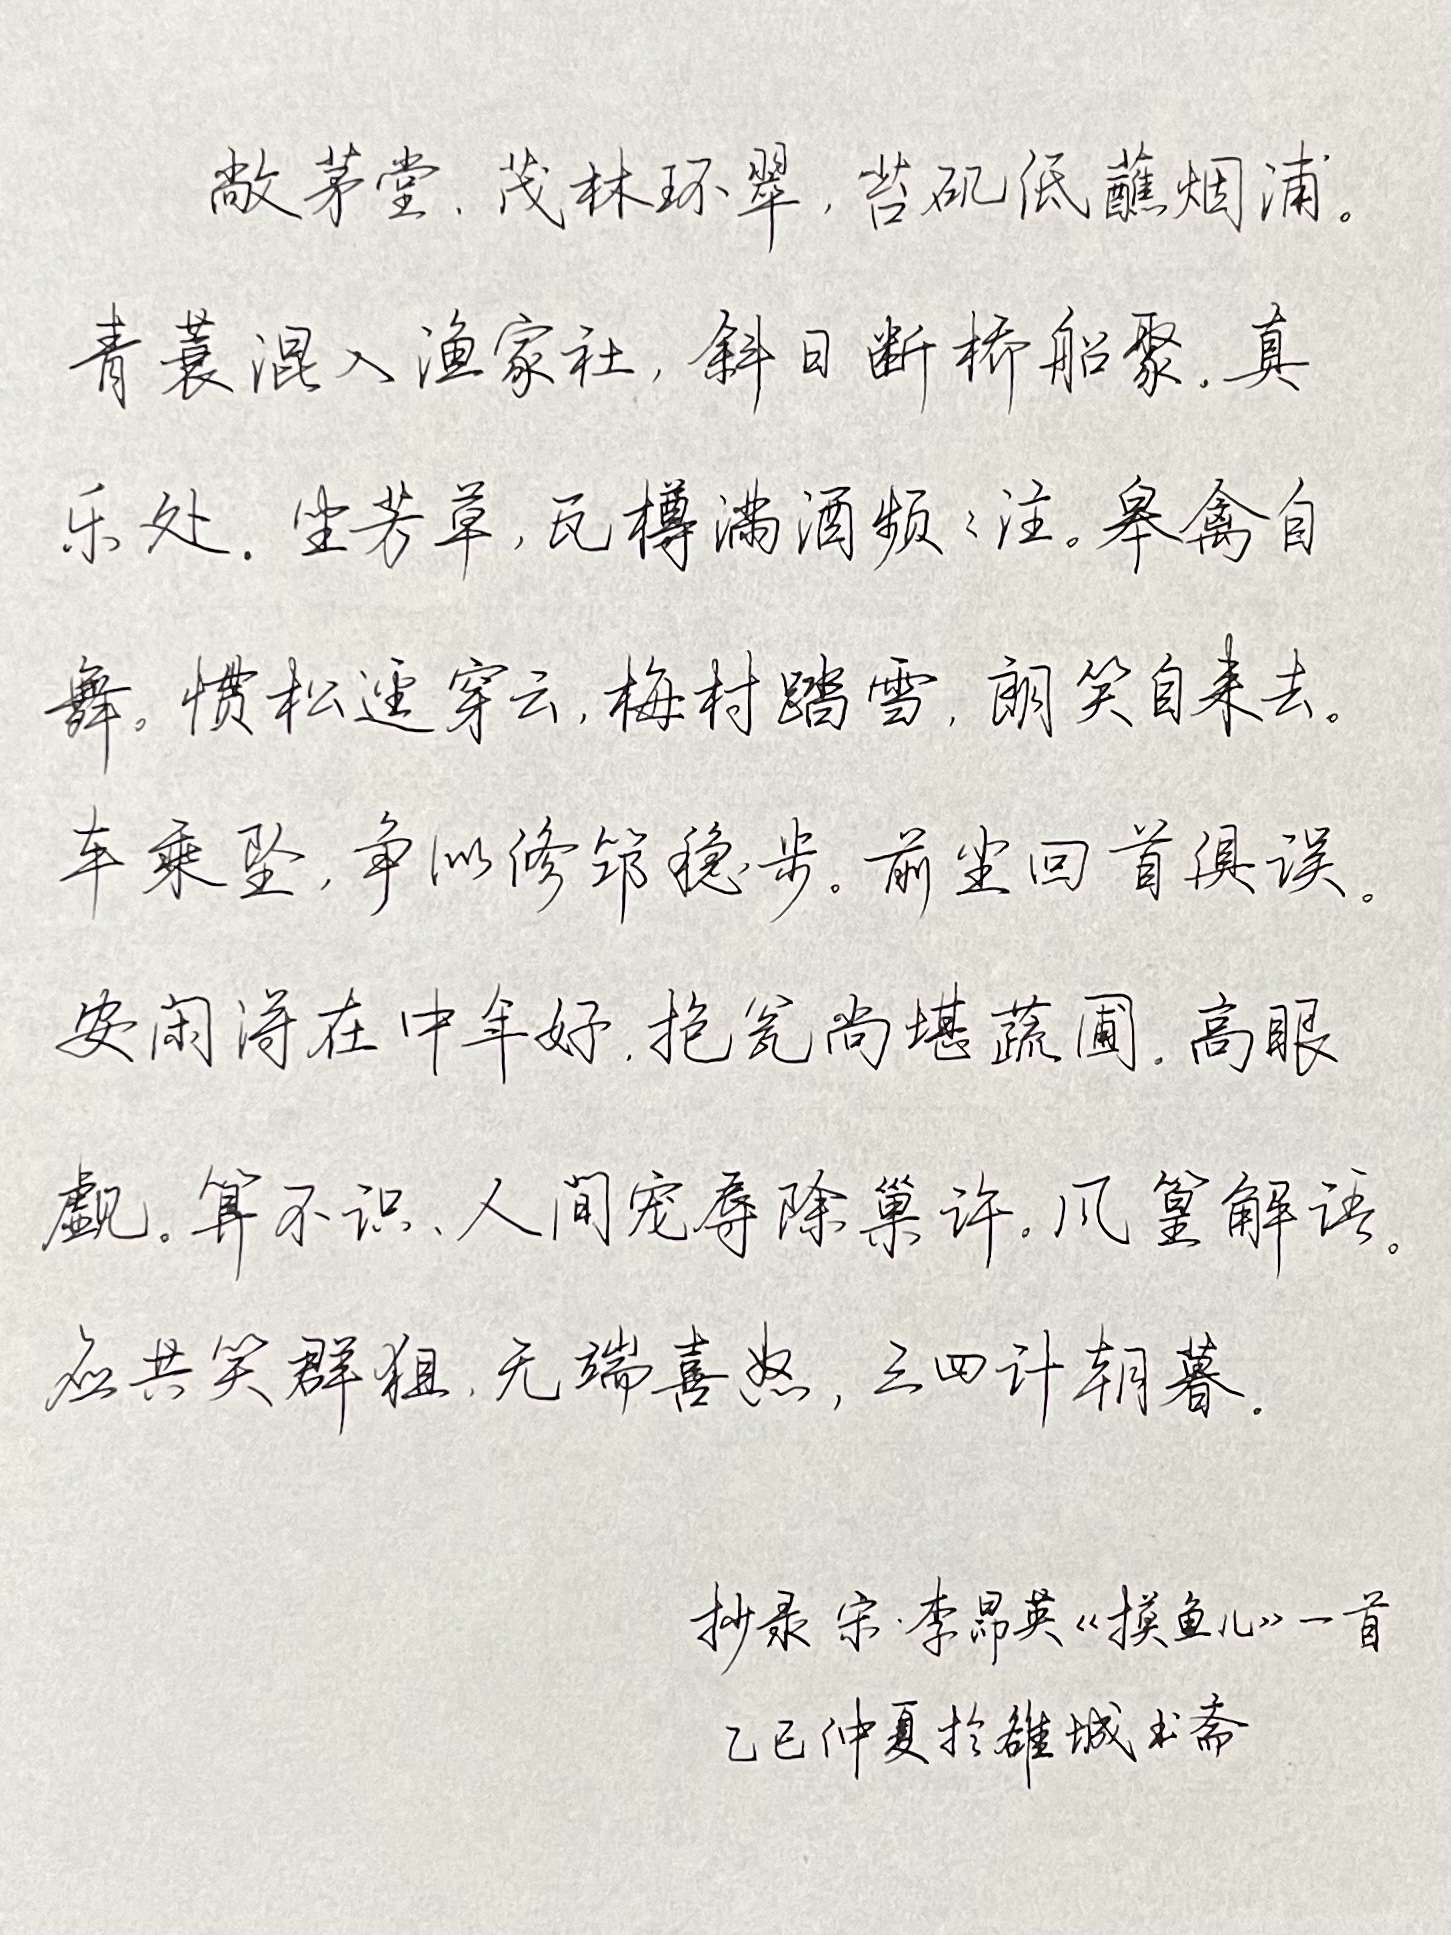 敞茅堂、茂林环翠，苔矶低蘸烟浦。
青蓑混入渔家社，斜日断桥船聚。真
乐处。坐芳草，瓦樽满酒频々注。皋禽自
舞。惯松迳穿云，梅村踏雪，朗笑自来去。
车乘坠，争似修筇稳步。前尘回首俱误。
安闲得在中年好，抱瓮尚堪蔬圃。高眼
觑。算不识、人间宠辱除巢许。风篁解语。
应共笑群狙、无端喜怒，三四计朝暮。
抄录宋·李昂英《摸鱼儿》一首
乙巳仲夏于雄城书斋